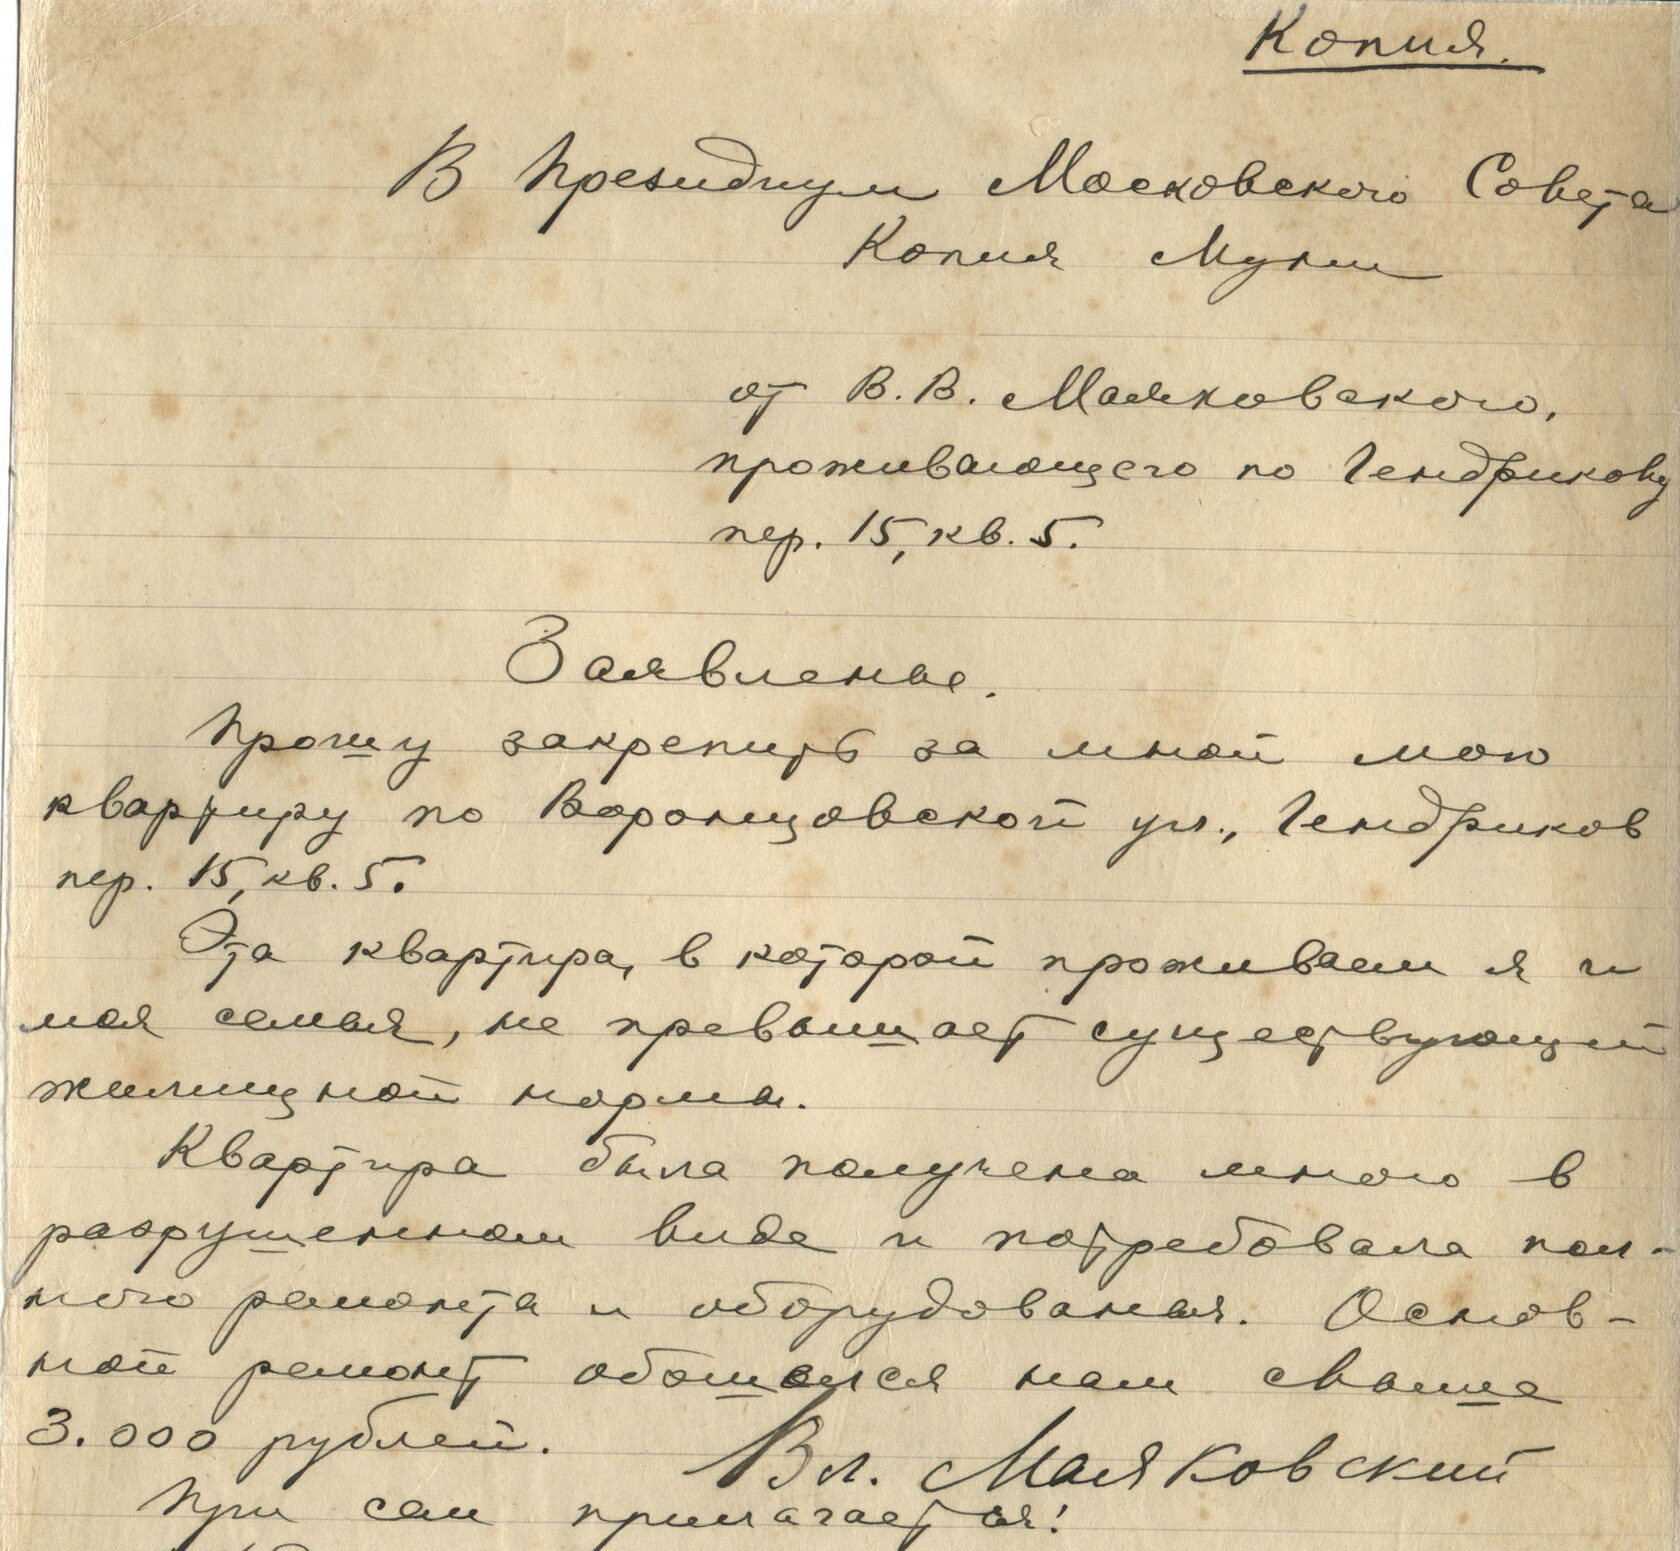 Копия.
В Президиум Московского Совета
Копия Муни
от В. В. Маяковского,
проживающего по Гендрикову
пер. 15, кв. 5.
Заявленье.
Прошу закрепить за мной мою
квартиру по Воронцовской ул., Гендриков
пер. 15, кв. 5.
Эта квартира, в которой проживаем я и
моя семья, не превышает существующей
жилищной нормы.
Квартира была получена мною в
разрушенном виде и потребовала пол-
ного ремонта и оборудованья. Основ-
ной ремонт обошелся нам свыше
3.000 рублей.
Вл. Маяковский
При сем прилагается: